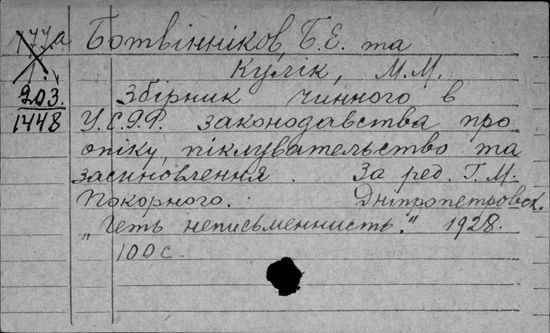 177а Ботвінніков, Б.Е. та
1. Кулік, М.М.
203. Збірник чинного в
1448 У.С.Р.Р. законодавства про
опіку, піклувательство та
засиновлення. За ред. Г.М.
Покорного. Дніпропетровск.
„Геть неписьменність." 1928.
100 с.